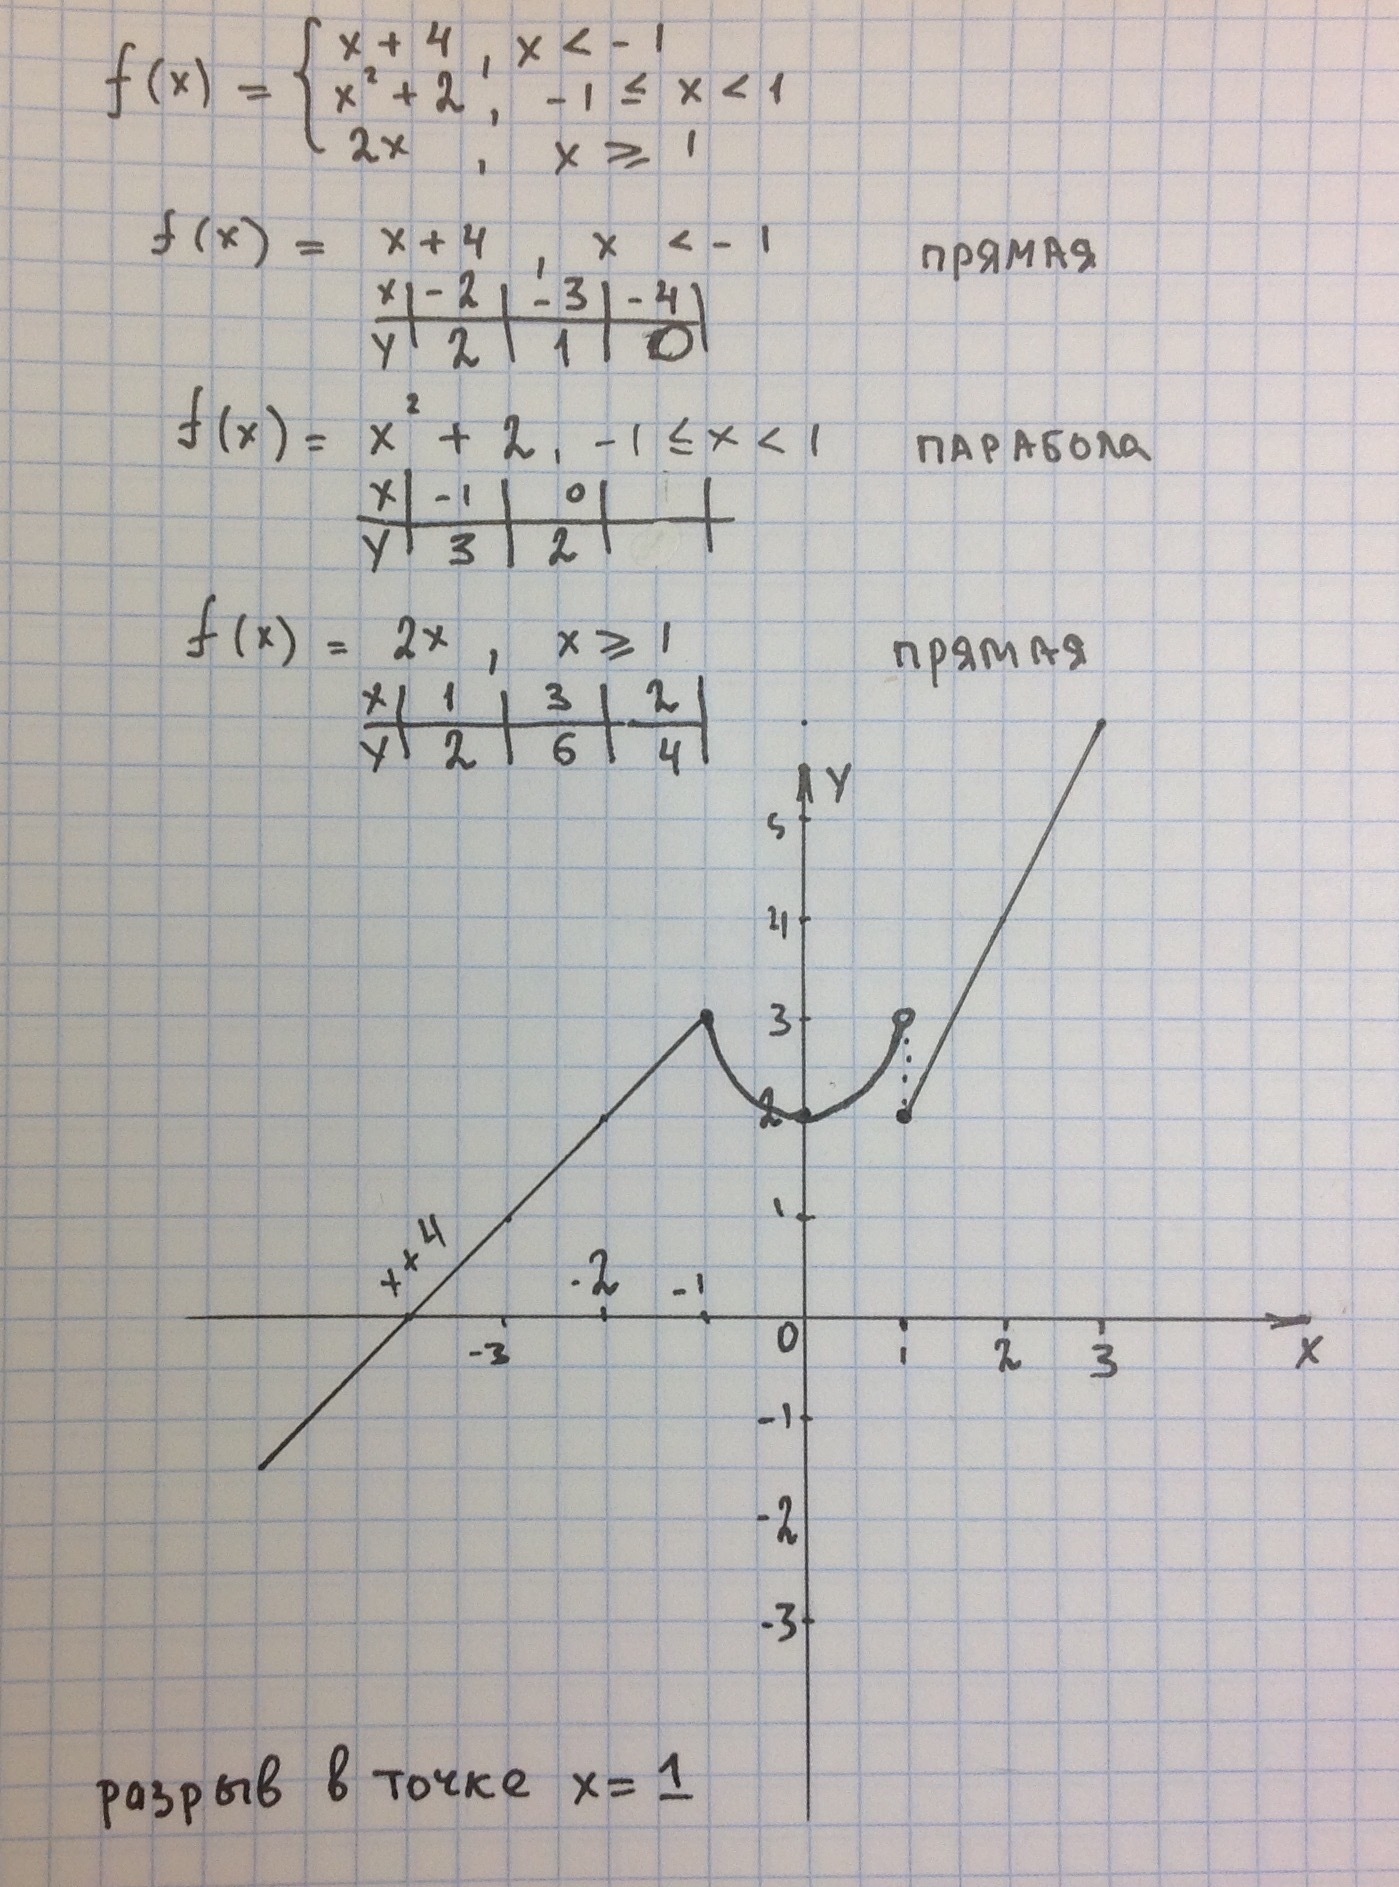 f(x) = { x + 4, x < -1
x² + 2, -1 ≤ x < 1
2x, x ≥ 1
f(x) = x + 4, x < -1 ПРЯМАЯ
x | -2 | -3 | -4 |
y | 2 | 1 | 0 |
f(x) = x² + 2, -1 ≤ x < 1 ПАРАБОЛА
x | -1 | 0 | |
y | 3 | 2 | |
f(x) = 2x, x ≥ 1 ПРЯМАЯ
x | 1 | 3 | 2 |
y | 2 | 6 | 4 |
Y
5
4
3
2
1
x+4
-2 -1
0
-3 1 2 3 X
-1
-2
-3
разрыв в точке x = 1